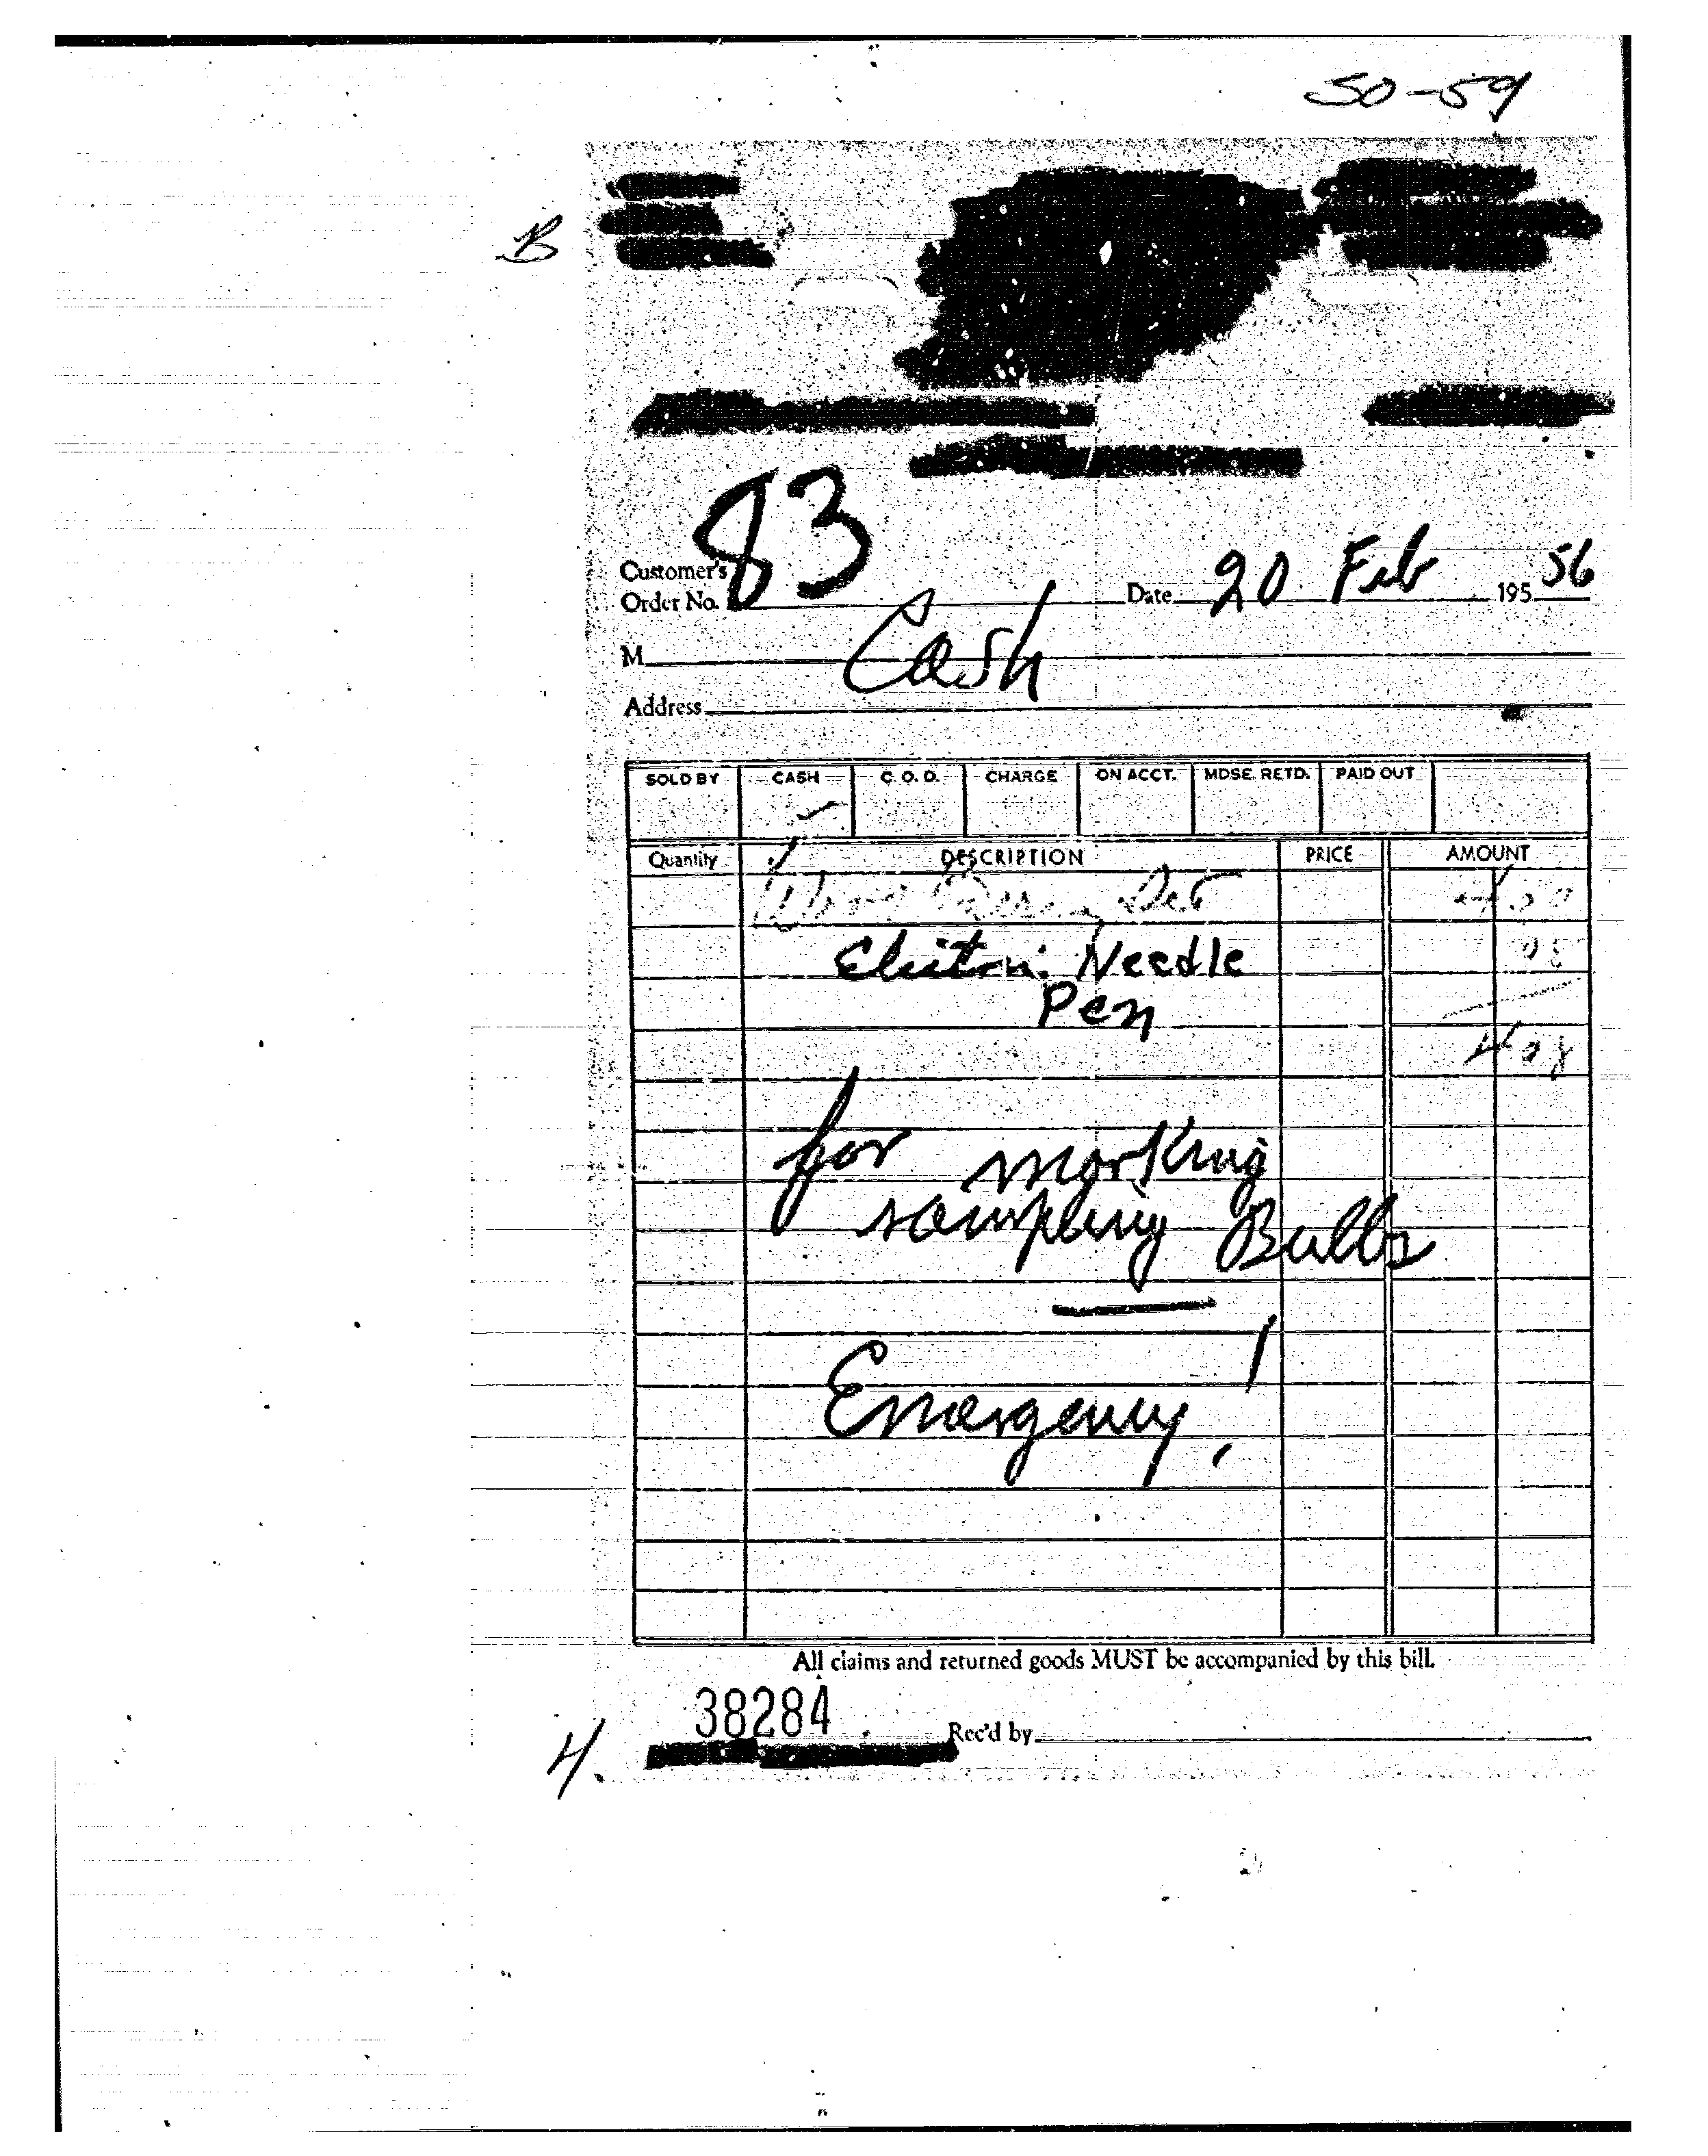 50-59
B
83
Customer's
Order No. Date 20 Feb 195 56
M Cash
Address
SOLD BY CASH C. O. D. CHARGE ON ACCT. MDSE. RETD. PAID OUT
Quantity DESCRIPTION PRICE AMOUNT
Set
Needle
Pen
for marking
sampling Bulbs
Emergency!
All claims and returned goods MUST be accompanied by this bill.
38284
Rec'd by
4.